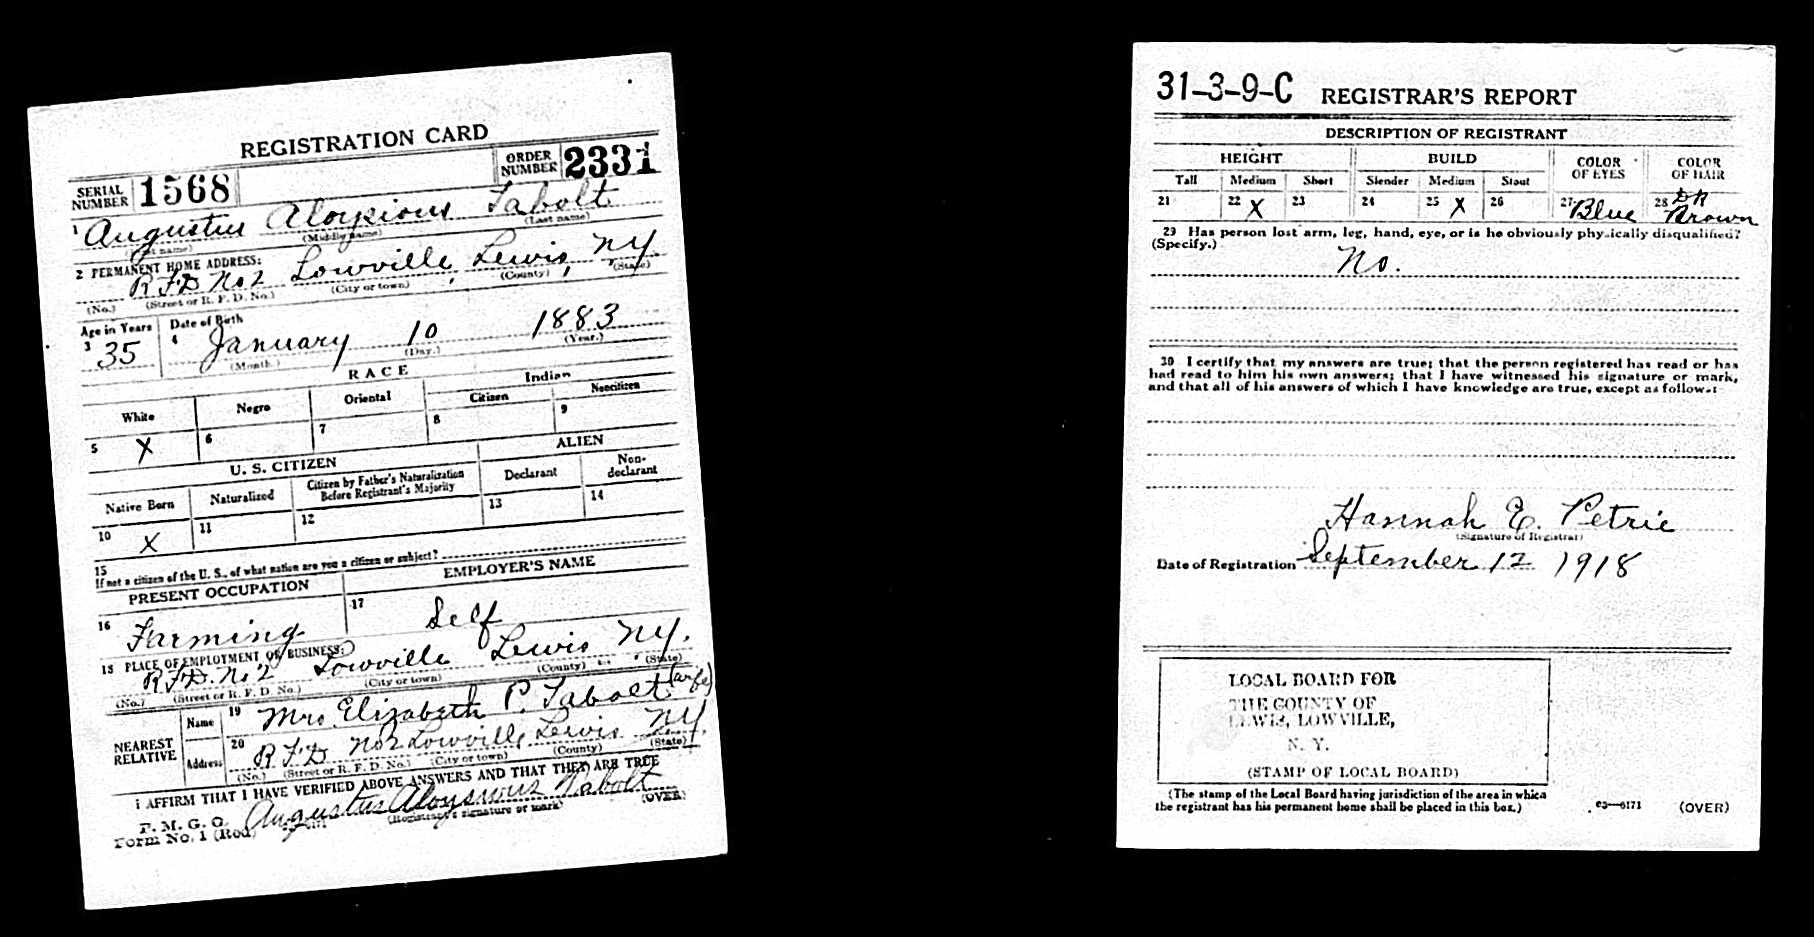 REGISTRATION CARD
SERIAL NUMBER 1568 ORDER NUMBER 2331
1 Augustus Aloysious Tabolt
(Middle name) (Last name)
2 PERMANENT HOME ADDRESS:
R.F.D. No 2 Lowville, Lewis, N.Y.
(No.) (Street or R. F. D. No.) (City or town) (County) (State)
Age in Years Date of Birth
3 35 4 January 10 1883
(Month.) (Day.) (Year.)
RACE
White Negro Oriental Indian
Citizen Noncitizen
5 X 6 7 8 9
U. S. CITIZEN ALIEN
Native Born Naturalized Citizen by Father's Naturalization Before Registrant's Majority Declarant Non-declarant
10 X 11 12 13 14
15
If not a citizen of the U. S., of what nation are you a citizen or subject?
PRESENT OCCUPATION EMPLOYER'S NAME
16 Farming 17 Self
18 PLACE OF EMPLOYMENT OR BUSINESS:
R.F.D. No 2 Lowville Lewis N.Y.
(No.) (Street or R. F. D. No.) (City or town) (County) (State)
NEAREST RELATIVE
Name 19 Mrs. Elizabeth P. Tabolt (wife)
Address 20 R.F.D No 2 Lowville Lewis N.Y.
(No.) (Street or R. F. D. No.) (City or town) (County) (State)
I AFFIRM THAT I HAVE VERIFIED ABOVE ANSWERS AND THAT THEY ARE TRUE
P. M. G. O.
Form No. 1 (Red) Augustus Aloysious Tabolt
(Registrant's signature or mark) (OVER)
31-3-9-C REGISTRAR'S REPORT
DESCRIPTION OF REGISTRANT
HEIGHT BUILD COLOR OF EYES COLOR OF HAIR
Tall Medium Short Slender Medium Stout
21 22 X 23 24 25 X 26 27 Blue 28 DK Brown
29 Has person lost arm, leg, hand, eye, or is he obviously physically disqualified?
(Specify.)
No.
30 I certify that my answers are true; that the person registered has read or has
had read to him his own answers; that I have witnessed his signature or mark,
and that all of his answers of which I have knowledge are true, except as follows:
Hannah E. Petrie
(Signature of Registrar)
Date of Registration September 12 1918
LOCAL BOARD FOR
THE COUNTY OF
LEWIS, LOWVILLE,
N. Y.
(STAMP OF LOCAL BOARD)
(The stamp of the Local Board having jurisdiction of the area in which
the registrant has his permanent home shall be placed in this box.)
03—6171 (OVER)